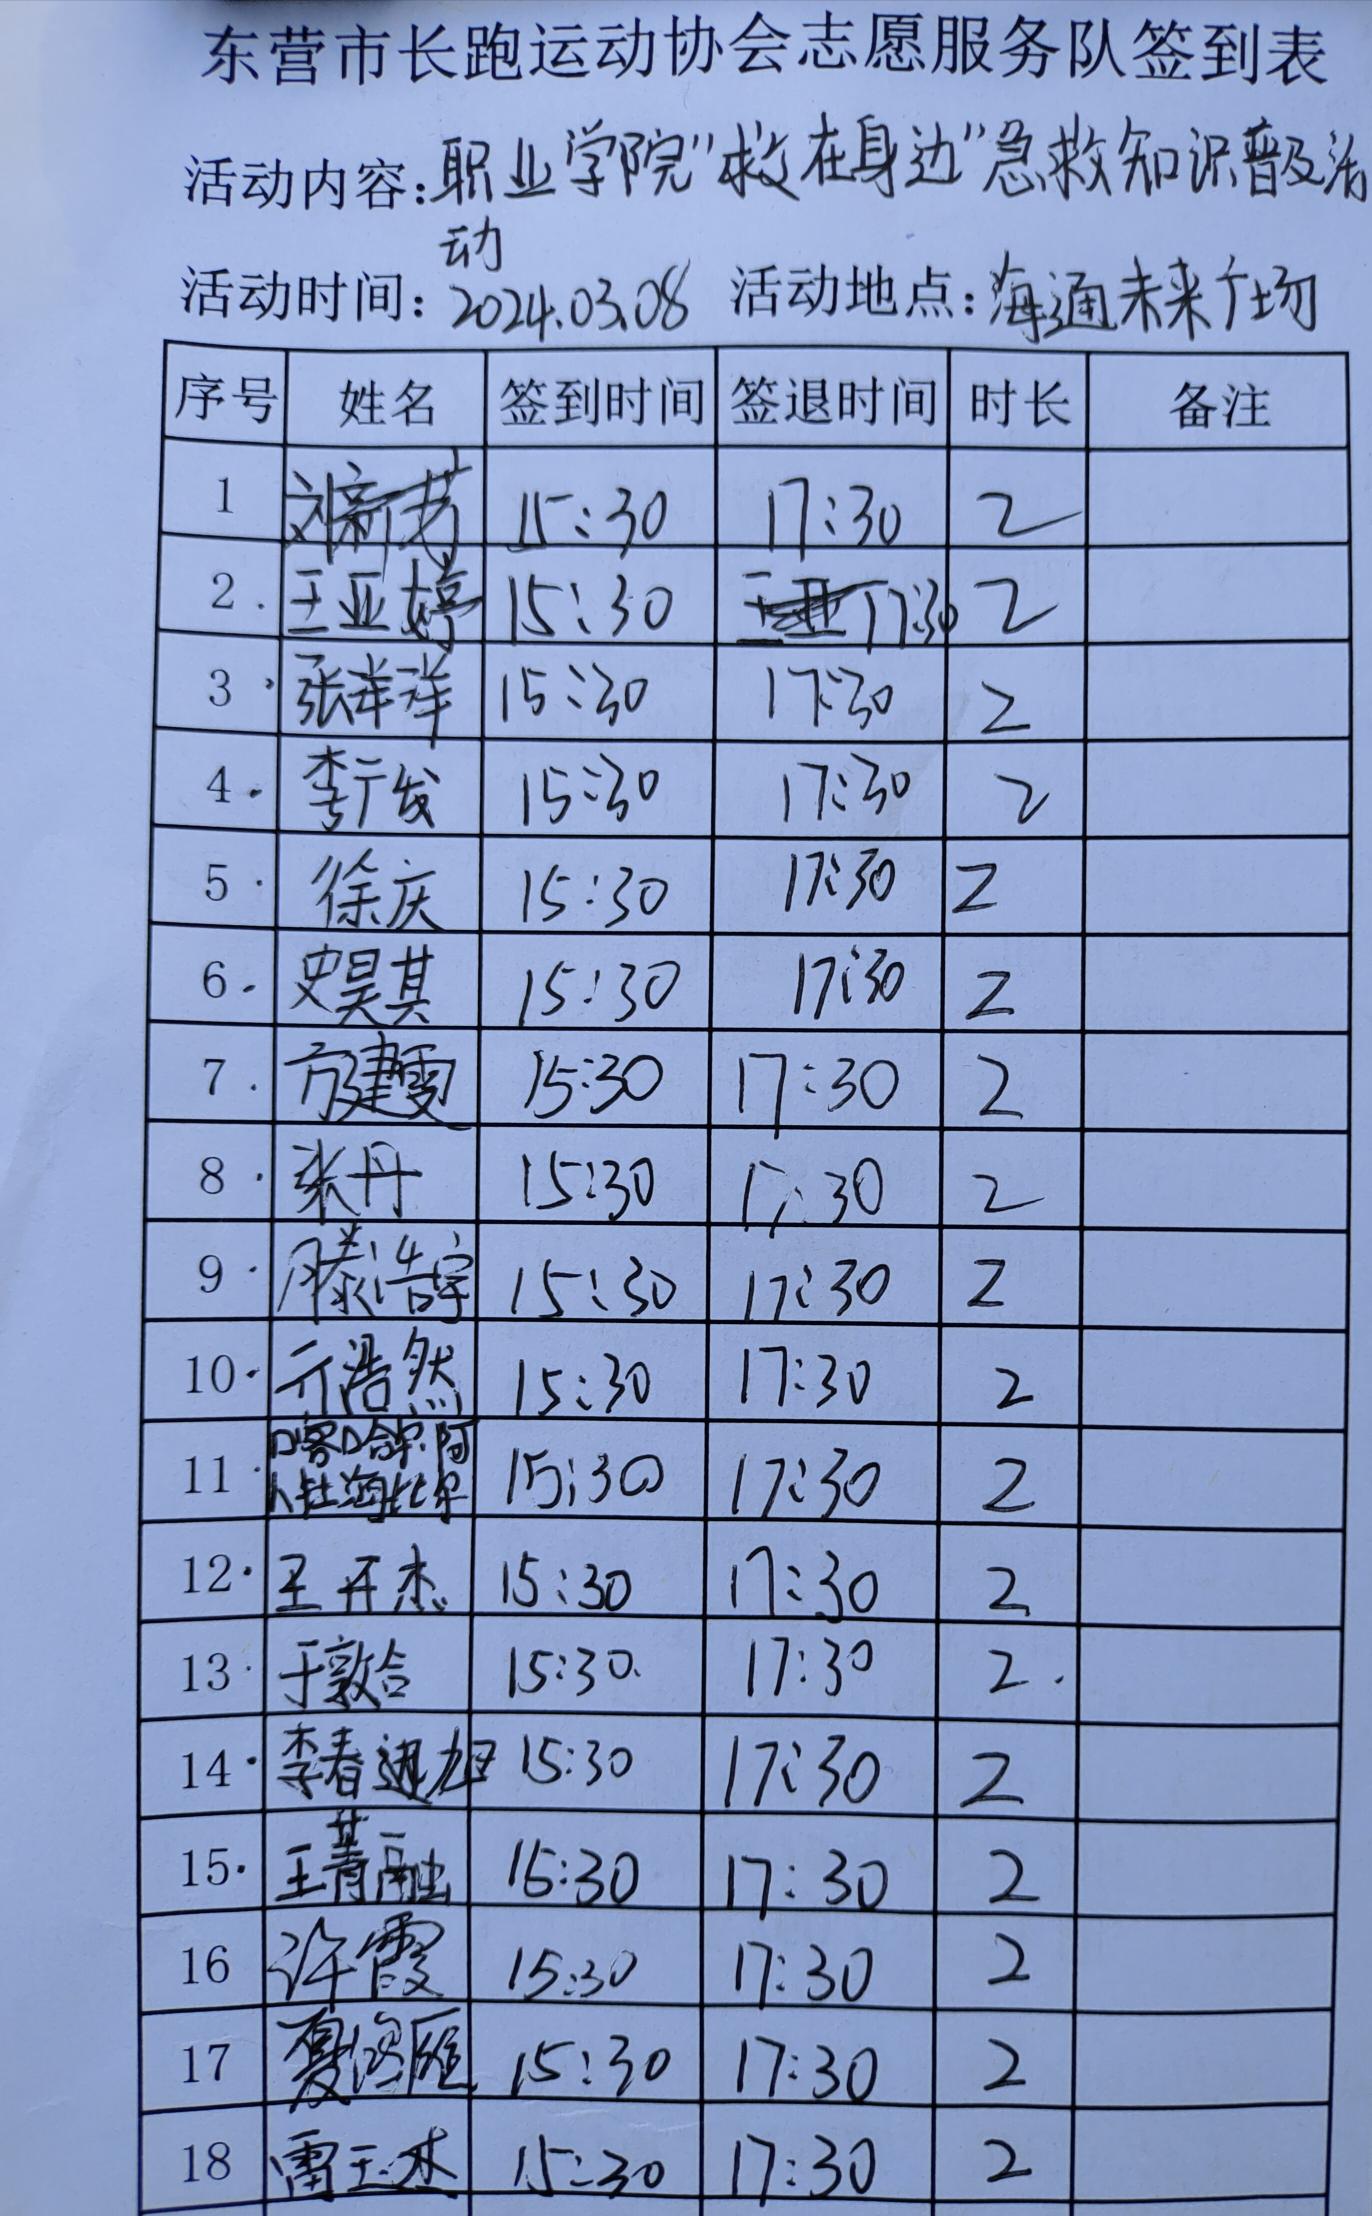 东营市长跑运动协会志愿服务队签到表
活动内容：职业学院“救在身边”急救知识普及活
动
活动时间：2024.03.08 活动地点：海通未来广场
序号 姓名 签到时间 签退时间 时长 备注
1 刘新芳 15:30 17:30 2
2 王亚婷 15:30 17:30 2
3 张洋洋 15:30 17:30 2
4 李广发 15:30 17:30 2
5 徐庆 15:30 17:30 2
6 史昊其 15:30 17:30 2
7 方建雯 15:30 17:30 2
8 张丹 15:30 17:30 2
9 滕浩宇 15:30 17:30 2
10 亓浩然 15:30 17:30 2
11 15:30 17:30 2
12 王开杰 15:30 17:30 2
13 于敦合 15:30 17:30 2
14 李春旭 15:30 17:30 2
15 王菁融 15:30 17:30 2
16 许霞 15:30 17:30 2
17 夏 15:30 17:30 2
18 雷玉杰 15:30 17:30 2